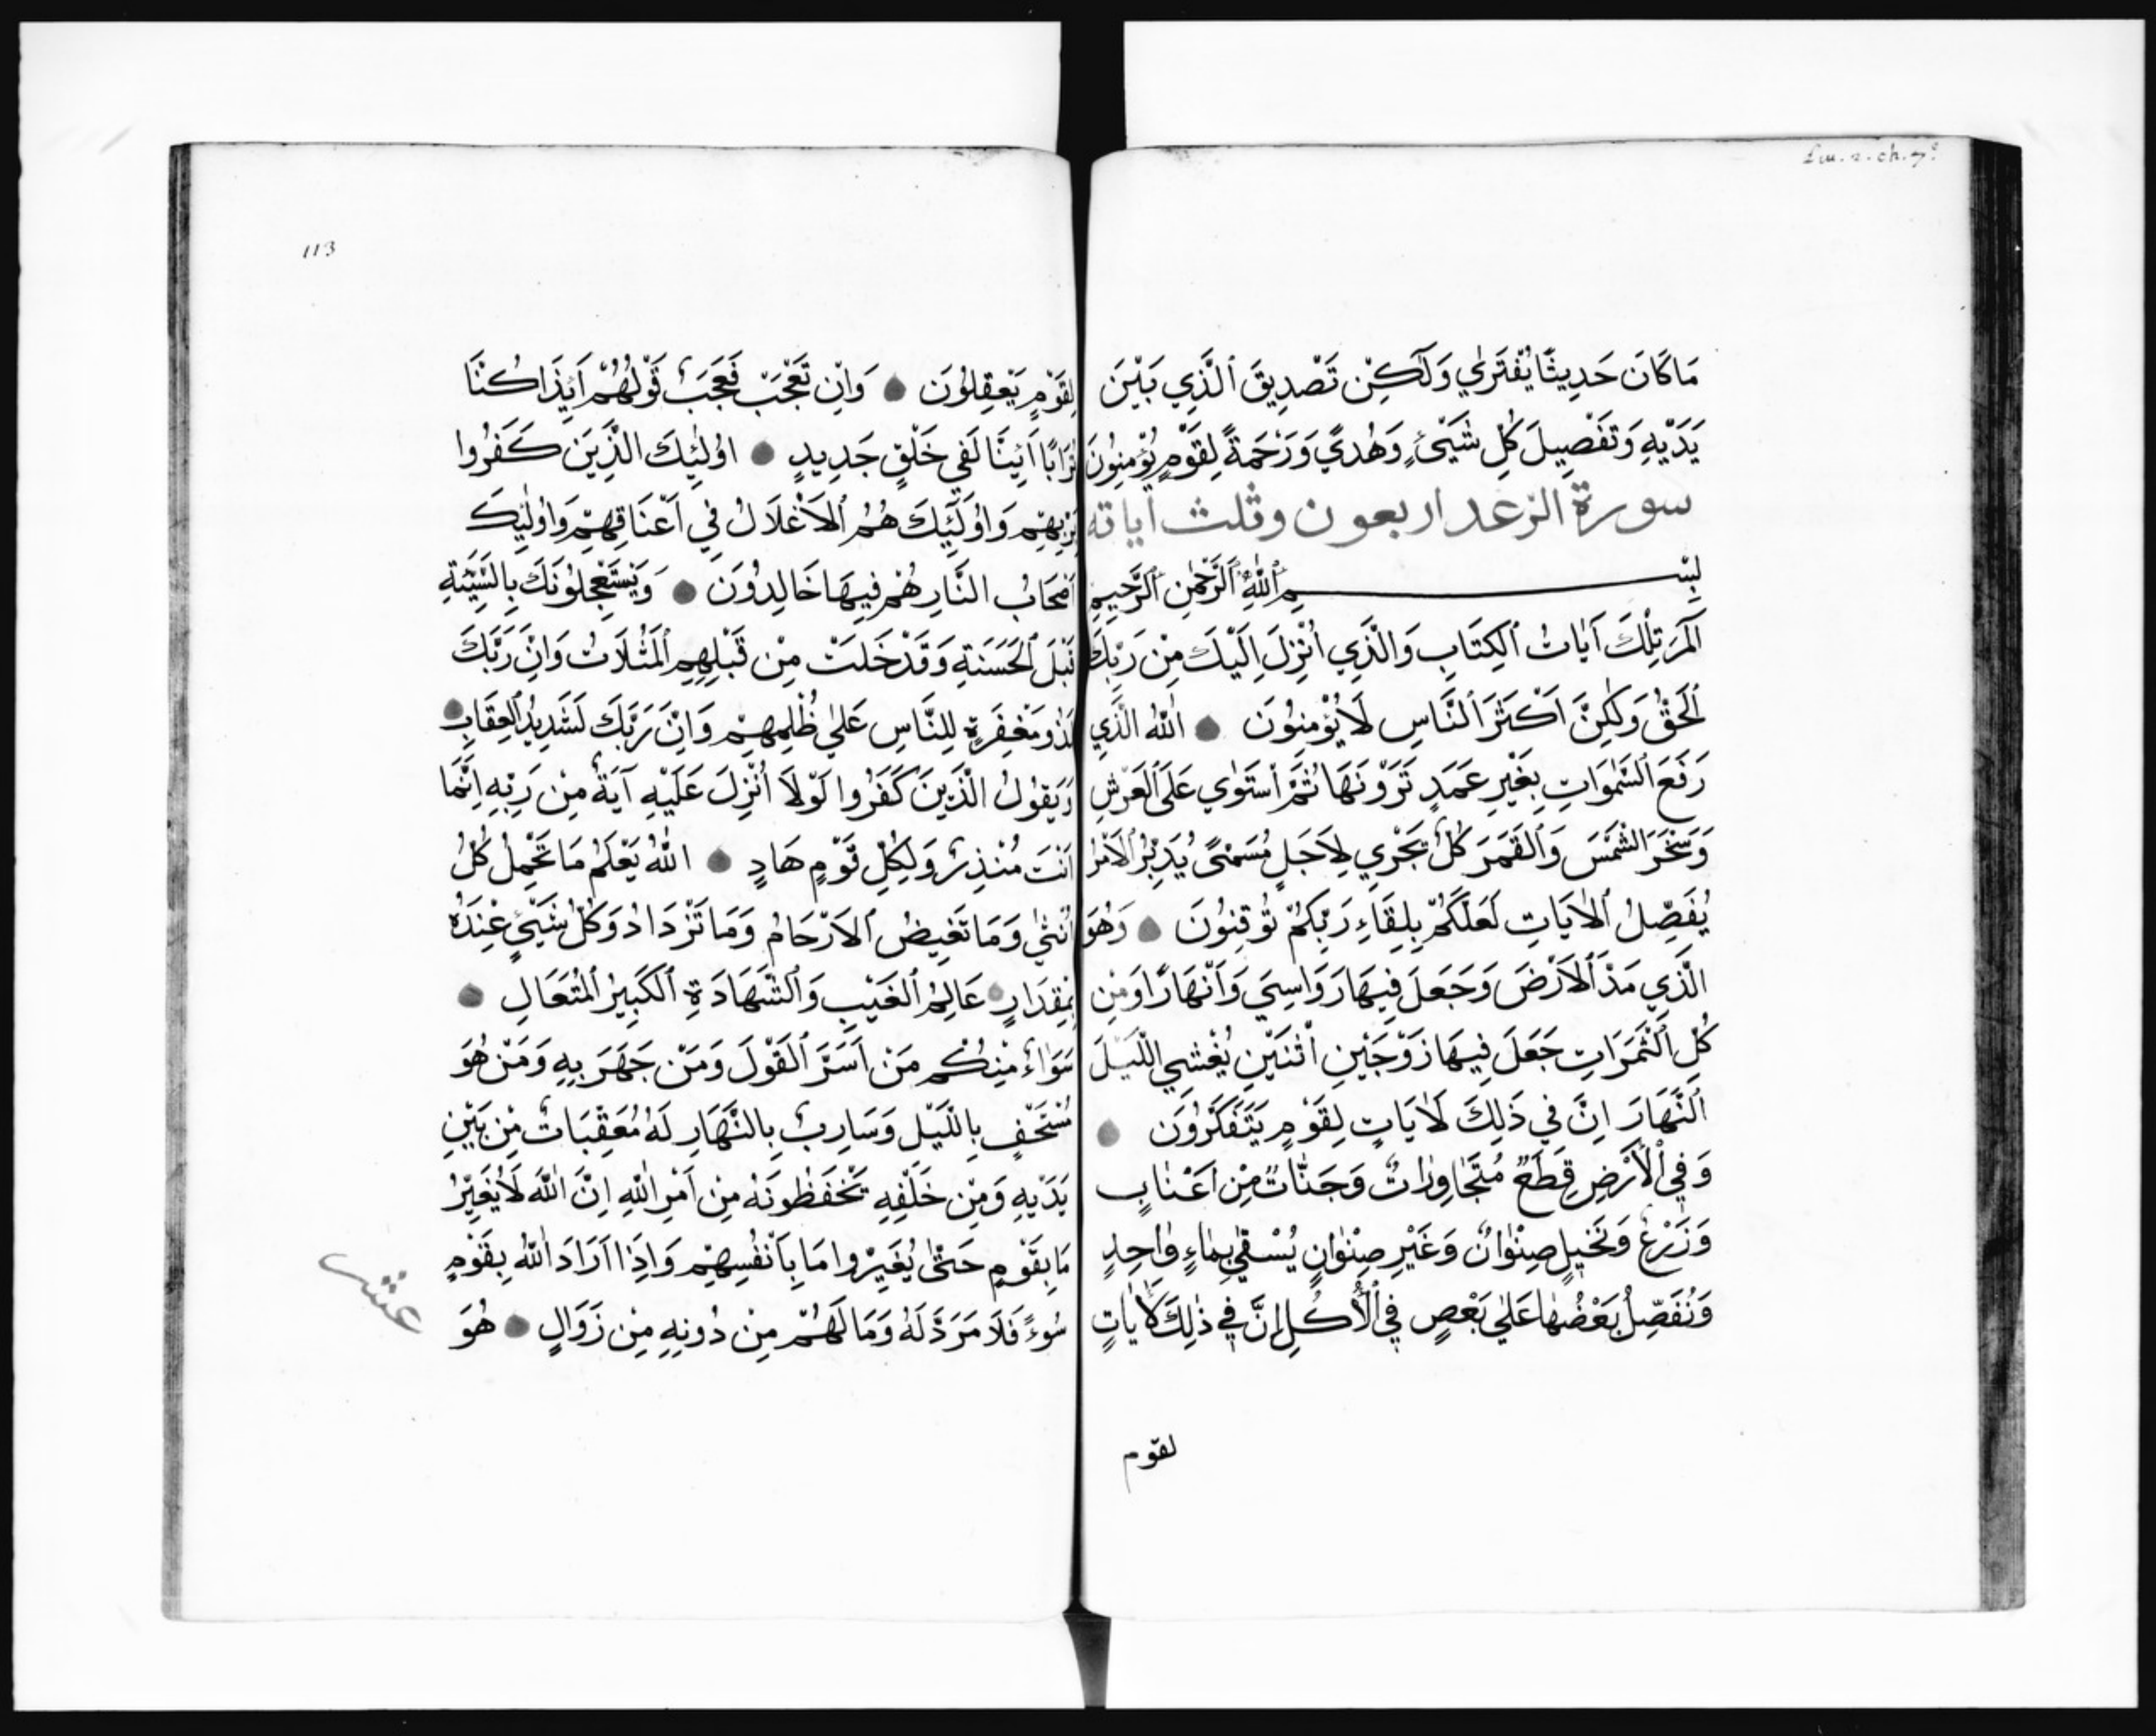 Sur. 2. ch. 7º
مَا كَانَ حَدِيثًا يُفْتَرٰي وَلٰكِنْ تَصْدِيقَ ٱلَّذِي بَيْنَ
يَدَيْهِ وَتَفْصِيلَ كُلِ شَيْئٍ وَهُدًي وَرَحْمَةً لِقَوْمٍ يُؤْمِنُونَ
سورة الرعد اربعون وثلث اياته
بِسْمِ ٱللّٰهِ ٱلرَّحْمٰنِ ٱلرَّحِيمِ
آلٓمٓرَ تِلْكَ آيَاتُ ٱلْكِتَابِ وَالَّذِي اُنْزِلَ اِلَيْكَ مِنْ رَبِّكَ
ٱلْحَقُّ وَلٰكِنَّ اَكْثَرَ ٱلنَّاسِ لَا يُؤْمِنُونَ ۝ اَللّٰهُ الَّذِي
رَفَعَ ٱلسَّمٰوَاتِ بِغَيْرِ عَمَدٍ تَرَوْنَهَا ثُمَّ ٱسْتَوٰي عَلَى ٱلْعَرْشِ
وَسَخَّرَ الشَّمْسَ وَٱلْقَمَرَ كُلٌ يَجْرِي لِاَجَلٍ مُسَمًّى يُدَبِّرُ ٱلْاَمْرَ
يُفَصِّلُ ٱلْاٰيَاتِ لَعَلَّكُمْ بِلِقَاءِ رَبِّكُمْ تُوقِنُونَ ۝ وَهُوَ
الَّذِي مَدَّ ٱلْاَرْضَ وَجَعَلَ فِيهَا رَوَاسِيَ وَاَنْهَارًا وَمِنْ
كُلِ ٱلْثَّمَرَاتِ جَعَلَ فِيهَا زَوْجَيْنِ اثْنَيْنِ يُغْشِي اللَّيْلَ
ٱلنَّهَارَ اِنَّ فِي ذٰلِكَ لَاٰيَاتٍ لِقَوْمٍ يَتَفَكَّرُونَ ۝
وَفِي ٱلْاَرْضِ قِطَعٌ مُتَجَاوِرَاتٌ وَجَنَّاتٌ مِنْ اَعْنَابٍ
وَزَرْعٌ وَنَخِيلٍ صِنْوَانٌ وَغَيْرِ صِنْوَانٍ يُسْقٰي بِمَاءٍ وَاحِدٍ
وَنُفَصِّلُ بَعْضُهَا عَلٰي بَعْصٍ فِي ٱلْاُكُلِ اِنَّ فِي ذٰلِكَ لَاٰيَاتٍ
لقوم
113
لِقَوْمٍ يَعْقِلُونَ ۝ وَاِنْ تَعْجَبْ فَعَجَبٌ قَوْلُهُمْ اَيِذَا كُنَّا
تُرَابًا اَئِينَّا لَفِي خَلْقٍ جَدِيدٍ ۝ اوُلٰئِكَ الَّذِيَن كَفَرُوا
بِرَبِّهِمْ وَاوُلٰئِكَ هُمُ ٱلْاَغْلَالُ فِي اَعْنَاقِهِمْ وَاوُلٰئِكَ
اَصْحَابُ النَّارِ هُمْ فِيهَا خَالِدُونَ ۝ وَيَسْتَعْجِلُونَكَ بِالسَّيِّئَةِ
قَبْلَ ٱلْحَسَنَةِ وَقَدْ خَلَتْ مِنْ قَبْلِهِمِ ٱلْمَثُلَاتُ وَاِنَّ رَبَّكَ
لَذُو مَغْفِرَةٍ لِلنَّاسِ عَلٰي ظُلْمِهِمْ وَاِنَّ رَبَّكَ لَشَدِيدُ ٱلْعِقَابِ ۝
وَيَقُولُ الَّذِينَ كَفَرُوا لَوْلَا اُنْزِلَ عَلَيْهِ آيَةٌ مِنْ رَبِّهِ اِنَّمَا
اَنْتَ مُنْذِرٌ وَلِكُلِ قَوْمٍ هَادٍ ۝ اَللّٰهُ يَعْلَمُ مَا تَحْمِلُ كُلُ
اُنْثٰي وَمَا تَغِيضُ ٱلْاَرْحَامُ وَمَا تَزْدَادُ وَكُلُ شَيْئٍ عِنْدَهُ
بِمِقْدَارٍ ۝ عَالِمُ ٱلْغَيْبِ وَٱلشَّهَادَةِ ٱلْكَبِيرُ ٱلْمُتَعَالِ ۝
سَوَاءٌ مِنْكُمْ مَنْ اَسَرَّ ٱلْقَوْلَ وَمَنْ جَهَرَ بِهِ وَمَنْ هُوَ
مُسْتَخْفٍ بِاللَّيْلِ وَسَارِبٌ بِالنَّهَارِ لَهُ مُعَقِّبَاتٌ مِنْ بَيْنِ
يَدَيْهِ وَمِنْ خَلْفِهِ يَحْفَظُونَهُ مِنْ اَمْرِ اللّٰهِ اِنَّ اللّٰهَ لَا يُغَيِّرُ
مَا بِقَوْمٍ حَتّٰى يُغَيِّرُوا مَا بِاَنْفُسِهِمْ وَاِذَا اَرَادَ اللّٰهُ بِقَوْمٍ
سُوءً فَلَا مَرَدَّ لَهُ وَمَا لَهُمْ مِنْ دُونِهِ مِنْ زَوَالٍ ۝ هُوَ
عشر